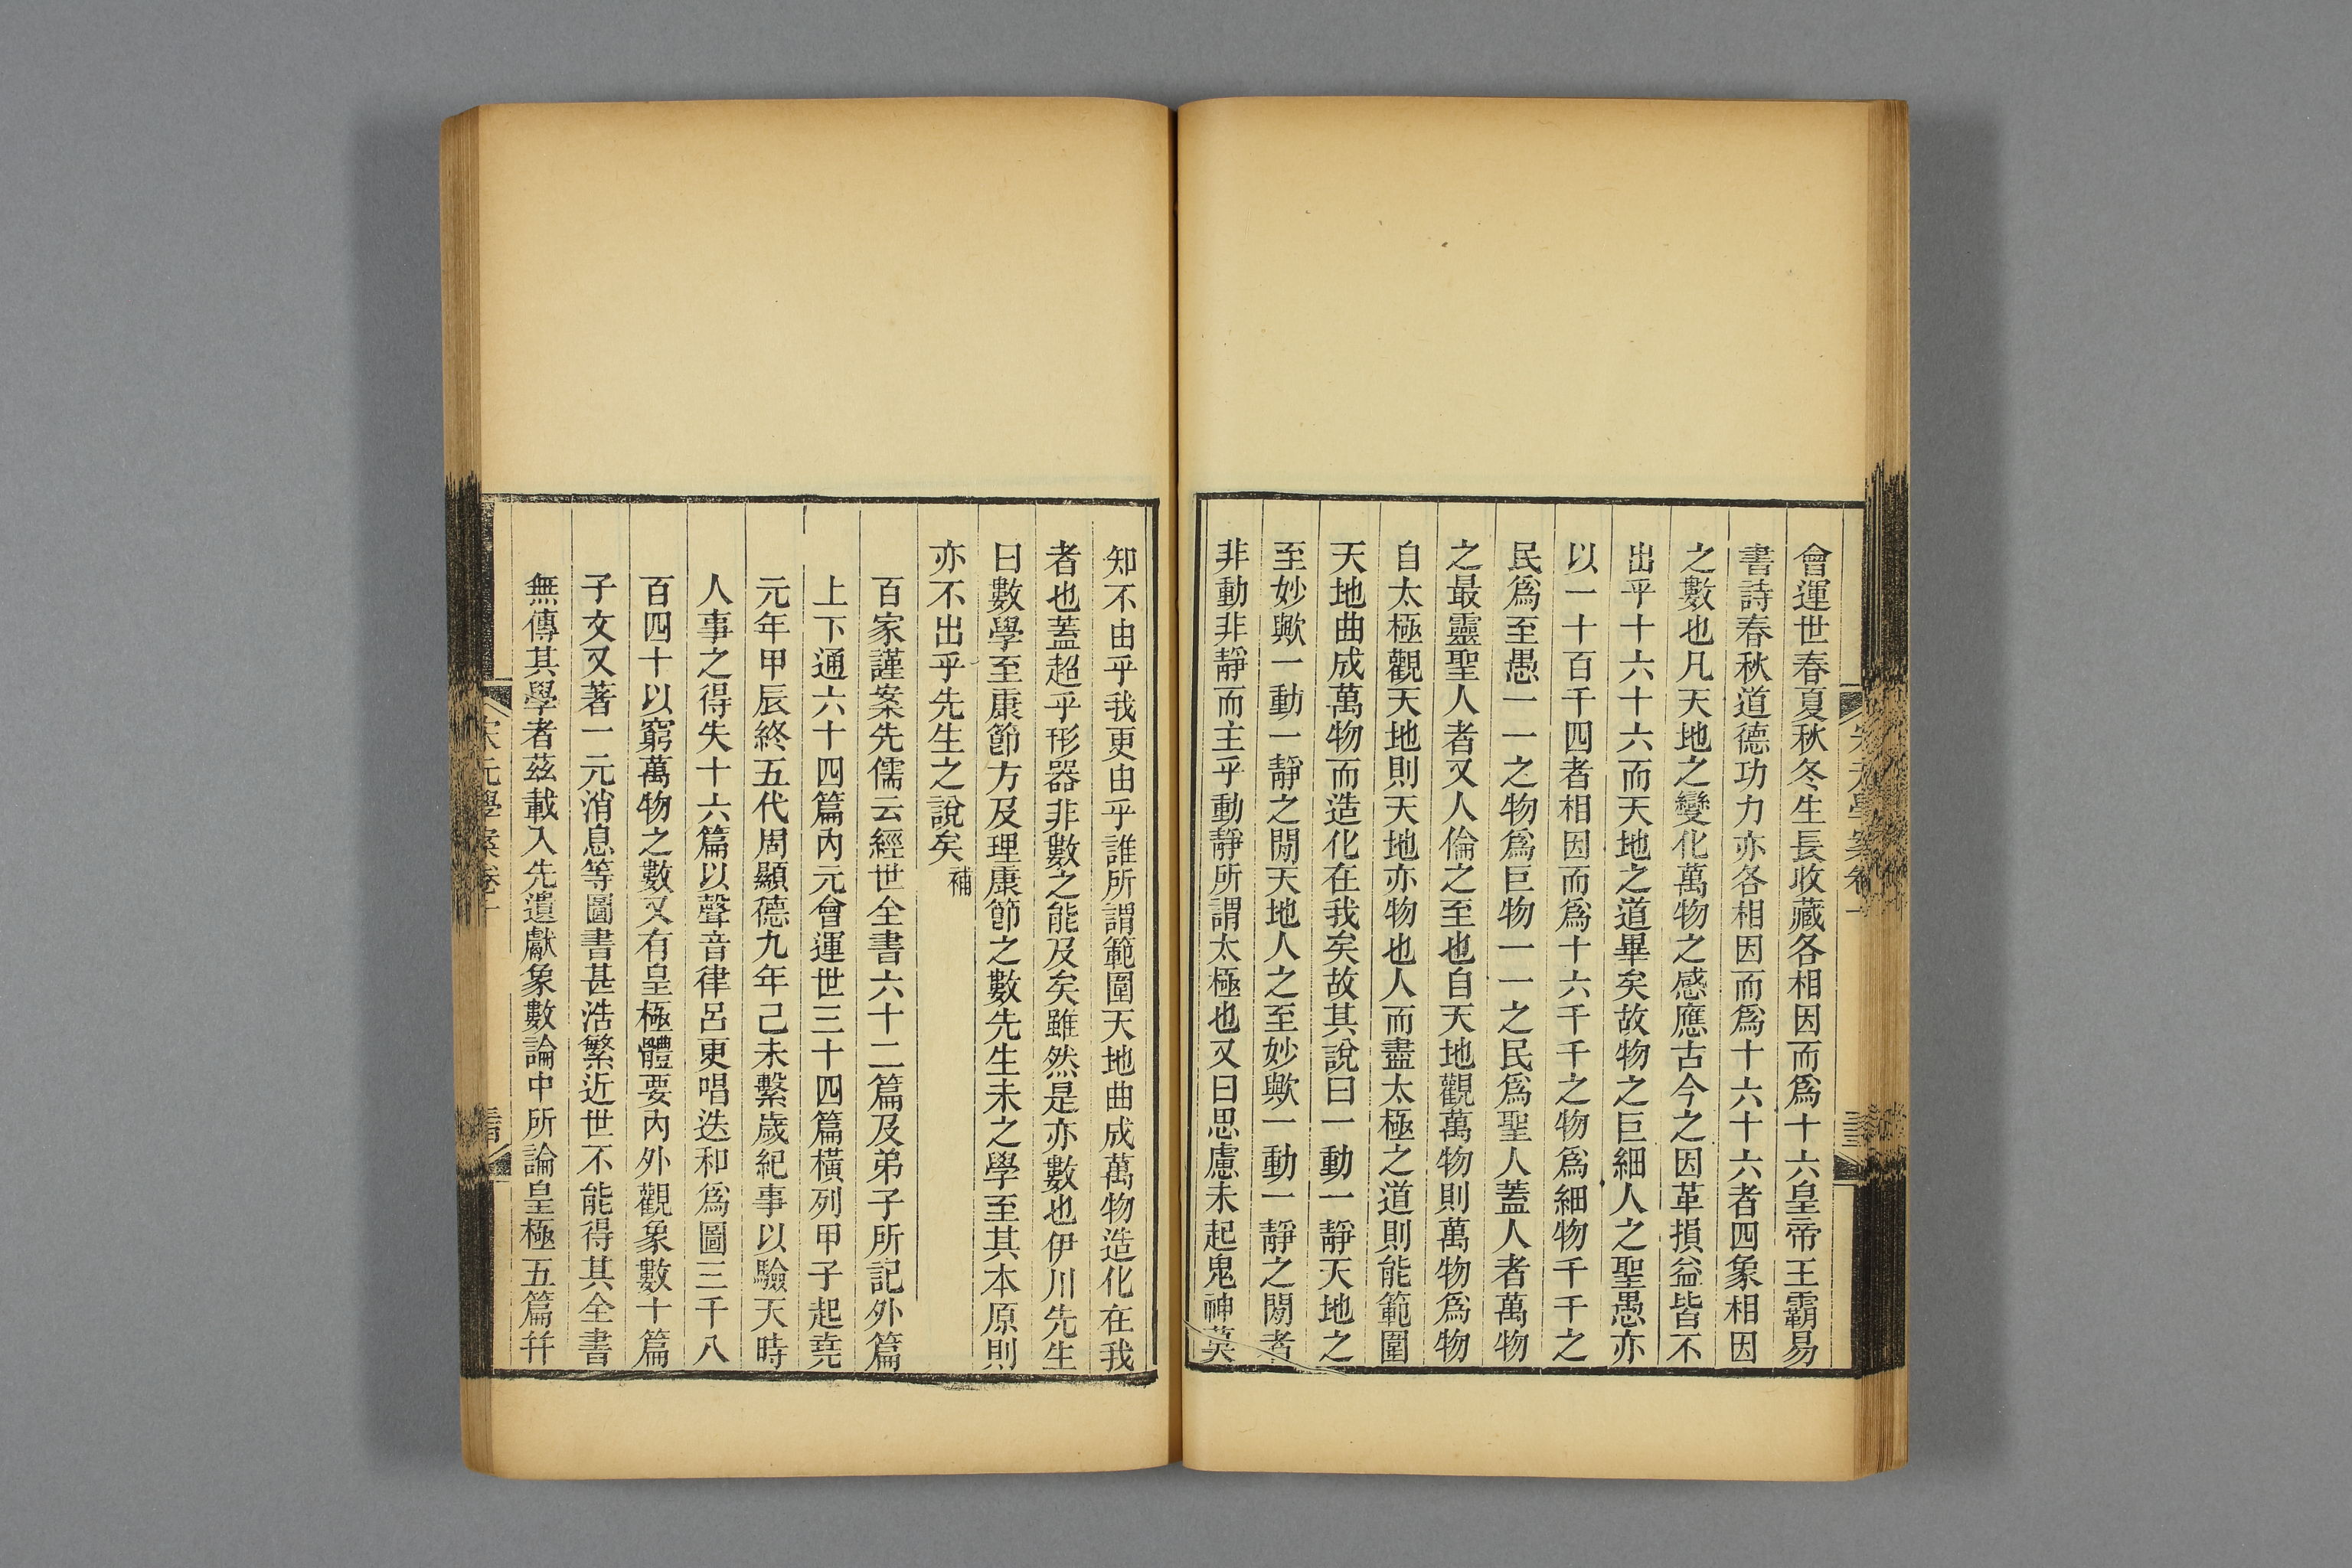 會運世春夏秋冬生長收藏各相因而爲十六皇帝王霸易
書詩春秋道德功力亦各相因而爲十六十六者四象相因
之數也凡天地之變化萬物之感應古今之因革損益皆不
出乎十六十六而天地之道畢矣故物之巨細人之聖愚亦
以一十百千四者相因而爲十六千千之物爲細物千千之
民爲至愚一一之物爲巨物一一之民爲聖人蓋人者萬物
之最靈聖人者又人倫之至也自天地觀萬物則萬物爲物
自太極觀天地則天地亦物也人而盡太極之道則能範圍
天地曲成萬物而造化在我矣故其說曰一動一靜天地之
至妙歟一動一靜之閒天地人之至妙歟一動一靜之閒者
非動非靜而主乎動靜所謂太極也又曰思慮未起鬼神莫
知不由乎我更由乎誰所謂範圍天地曲成萬物造化在我
者也蓋超乎形器非數之能及矣雖然是亦數也伊川先生
曰數學至康節方及理康節之數先生未之學至其本原則
亦不出乎先生之說矣補
百家謹案先儒云經世全書六十二篇及弟子所記外篇
上下通六十四篇內元會運世三十四篇橫列甲子起堯
元年甲辰終五代周顯德九年己未繫歲紀事以驗天時
人事之得失十六篇以聲音律呂更唱迭和爲圖三千八
百四十以窮萬物之數又有皇極體要內外觀象數十篇
子文又著一元消息等圖書甚浩繁近世不能得其全書
無傳其學者茲載入先遺獻象數論中所論皇極五篇幷
宋元學案卷十